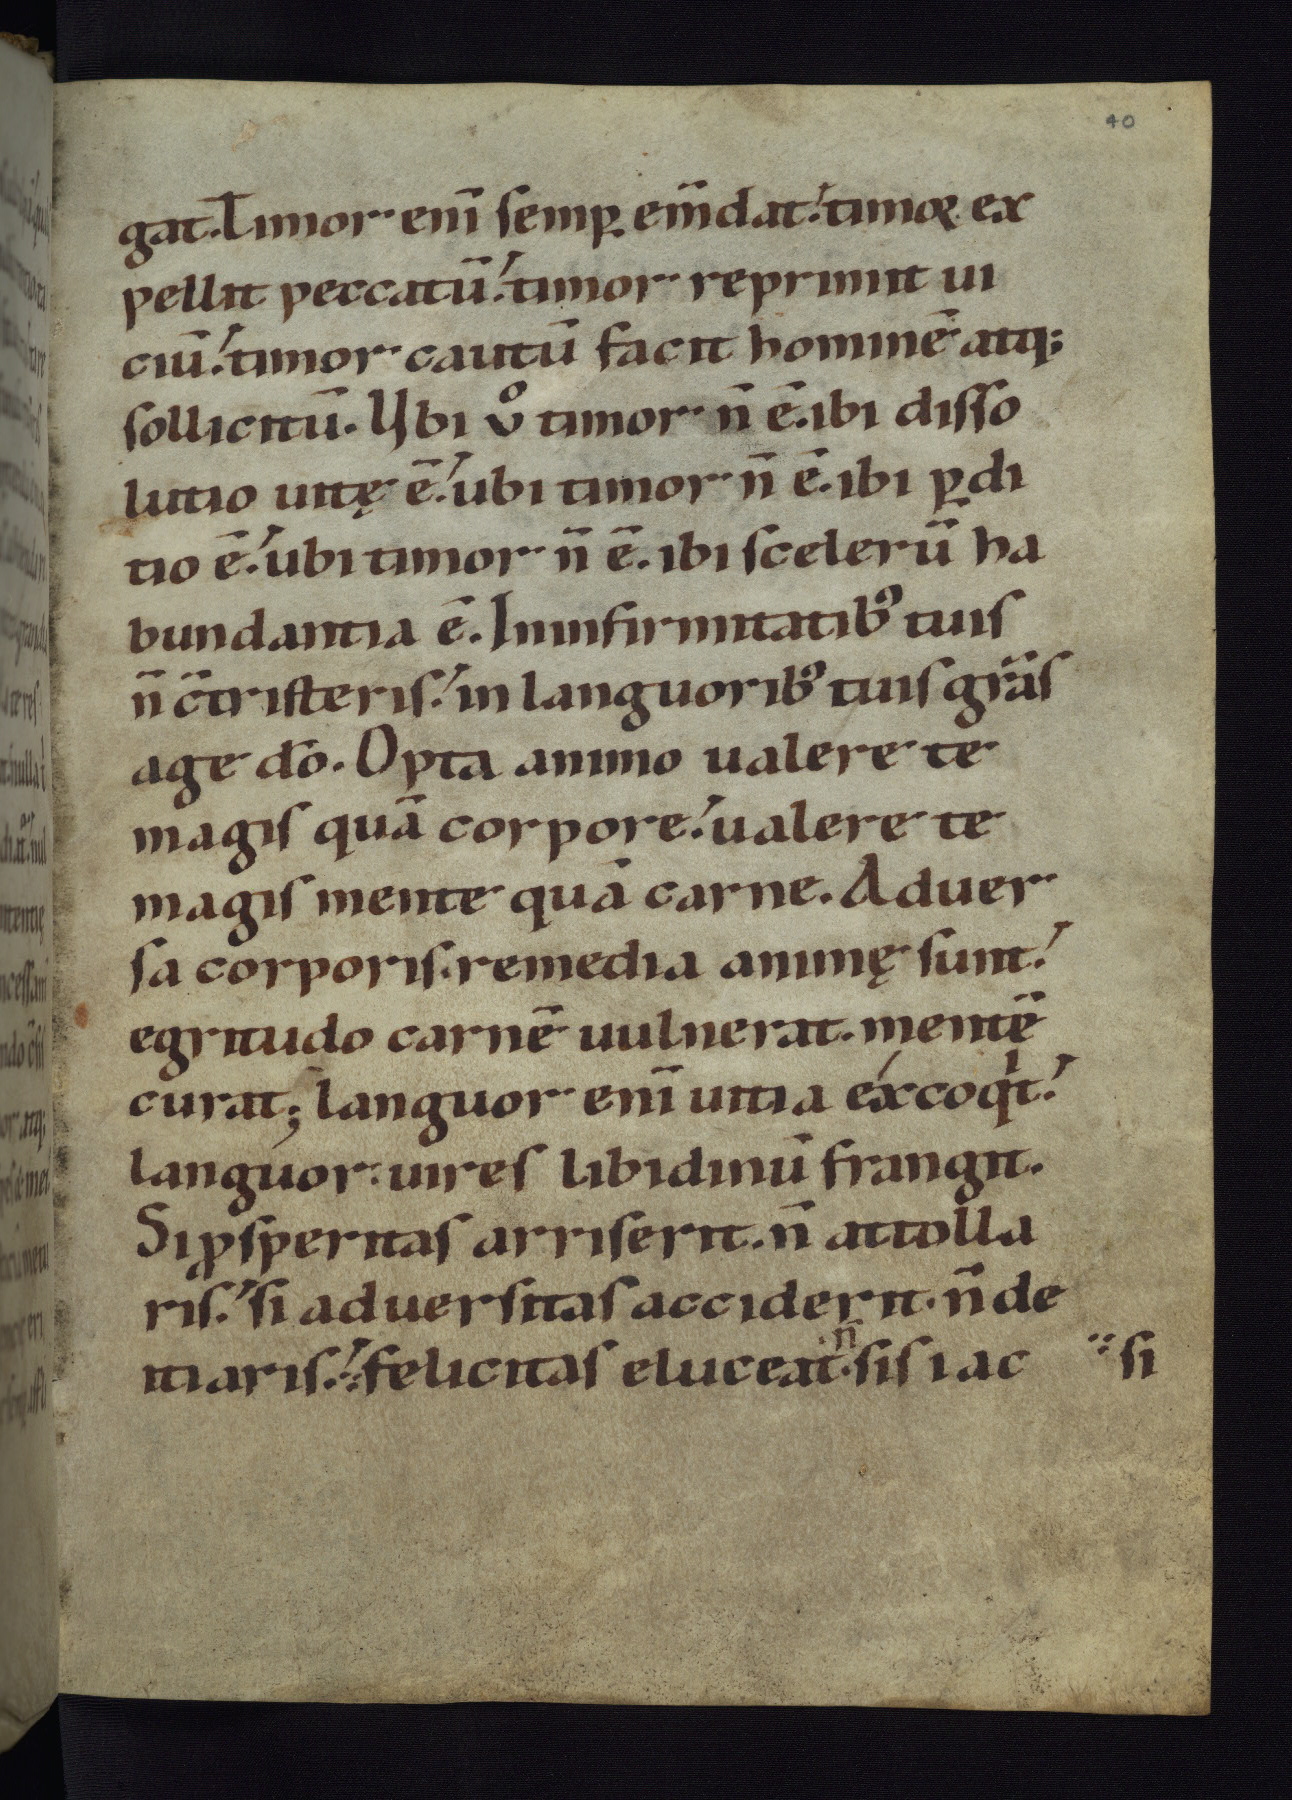 40
gat. Timor enī semꝑ em̄dat. timoꝝ ex
pellit peccatū. timor reprimit ui
ciū. timor cautū facit hominē atq;
sollicitū. Vbi v̊ timor n̄ ē. ibi disso
lutio uitę ē. ubi timor n̄ ē. ibi ꝑdi
tio ē. ubi timor n̄ ē. ibi scelerū ha
bundantia ē. In infirmitatibꝰ tuis
n̄ c̄tristeris. in languoribꝰ tuis gr̄as
age do̅. Opta animo ualere te
magis quā corpore. ualere te
magis mente quā carne. Aduer
sa corporis. remedia animę sunt.
egritudo carnē uulnerat. mentē
curat; languor enī uitia excoqͥt.
languor. uires libidinū frangit.
Si ꝓsperitas arriserit. n̄ attolla
ris. si aduersitas acciderit. n̄ de
iitiaris. felicitas eluceat. n̄ sis iac si